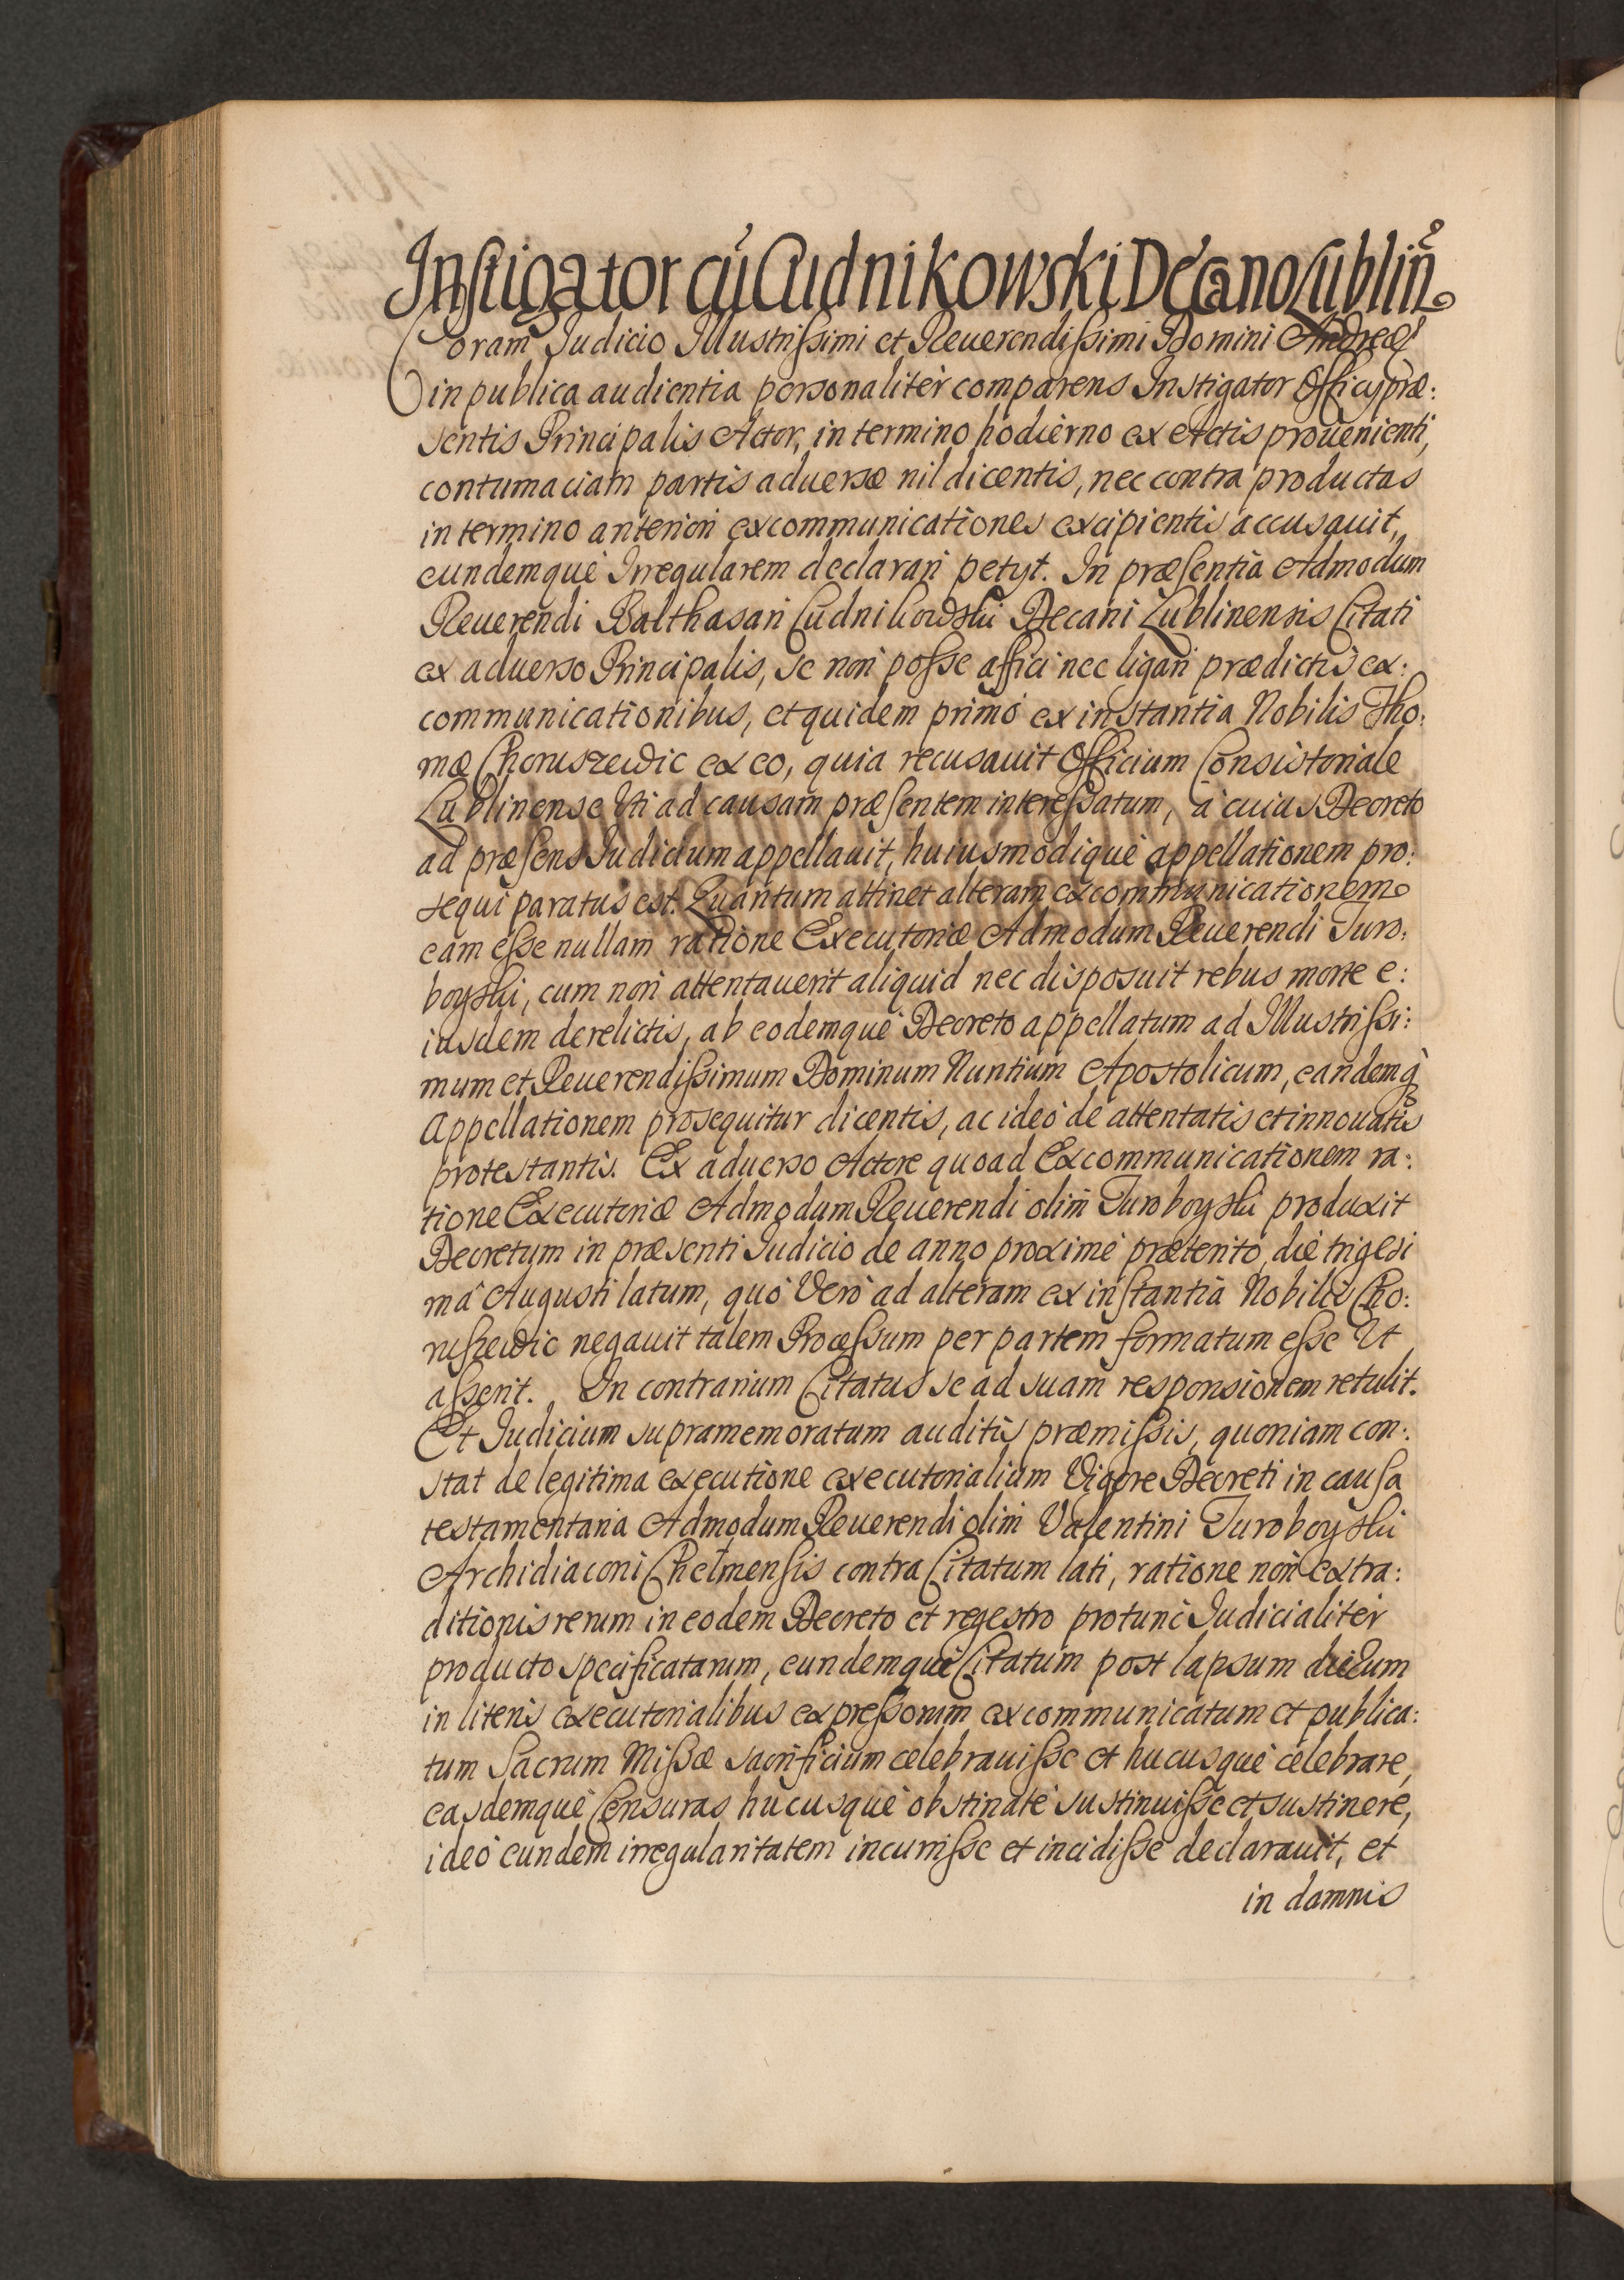 Instigator cũ Cudnikowski Decano Lublin̄.
Coram Judicio Illustrissimi et Reuerendissimi Domini Andreæ
in publica audientia personaliter comparens Instigator Officy præ:
sentis Principalis Actor, in termino hodierno ex Actis prouenienti,
contumaciam partis aduersæ nil dicentis, nec contra productas
in termino anteriori excommunicationes excipientis accusauit,
eundemque Irregularem declarari petyt. In præsentia Admodum
Reuerendi Balthasari Cudnikowski Decani Lublinensis Citati
ex aduerso Principalis, se non posse affici nec ligari prædictis ex:
communicationibus, et quidem primo ex instantia Nobilis Tho:
mæ Choruszewic ex eo, quia recusauit Officium Consistoriale
Lublinense Uti ad causam præsentem interessatum, à cuius Decreto
ad præsens Judicium appellauit, huiusmodique appellationem pro:
sequi paratus est. Quantum attinet alteram excommunicationem
eam esse nullam ratione Executoriæ Admodum Reuerendi Turo:
boyski, cum non attentauerit aliquid nec disposuit rebus morte e:
iusdem derelictis, ab eodemque Decreto appellatum ad Illustrissi:
mum et Reuerendissimum Dominum Nuntium Apostolicum, eandemq̀
Appellationem prosequitur dicentis, ac ideo de attentatis et innouatis
protestantis. Ex aduerso Actore quoad Excommunicationem ra:
tione Executoriæ Admodum Reuerendi olim Turoboyski produxit
Decretum in præsenti Judicio de anno proximè præterito, die trigesi
mâ Augusti latum, quo Vero ad alteram ex instantia Nobilis Cho:
ruszewic negauit talem Processum per partem formatum esse Ut
asserit. In contrarium Citatus se ad suam responsionem retulit.
Et Judicium supramemoratum auditis præmissis, quoniam con:
stat de legitima executione executorialium Vigore Decreti in causa
testamentaria Admodum Reuerendi olim Valentini Turoboyski
Archidiaconi Chelmensis contra Citatum lati, ratione non extra:
ditionis rerum in eodem Decreto et regestro protunc Judicialiter
producto specificatarum, eundemque Citatum post lapsum dierum
in literis executorialibus expressorum excommunicatum et publica:
tum Sacrum Missæ sacrificium celebrauisse et hucusque celebrare,
easdemque Censuras hucusque obstinatè sustinuisse et sustinere,
ideo eundem irregularitatem incurrisse et incidisse declarauit, et
in damnis